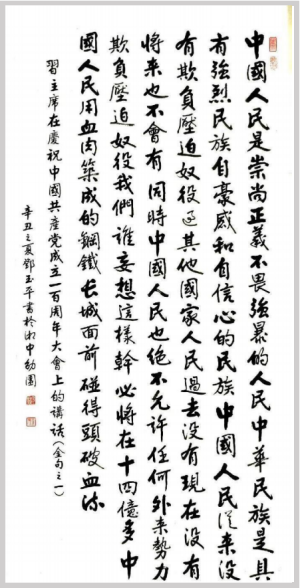 中國人民是崇尚正義不畏強暴的人民中華民族是具
有強烈民族自豪感和自信心的民族中國人民從来没
有欺負壓迫奴役過其他國家人民過去没有現在没有
将来也不會有同時中國人民也绝不允許任何外来勢力
欺負壓迫奴役我們誰妄想這樣幹必将在十四億多中
國人民用血肉築成的鋼鐵长城面前碰得頭破血流
習主席在慶祝中國共產党成立一百周年大會上的講話(金句之一)
辛丑之夏鄧玉平書於湘中幼園